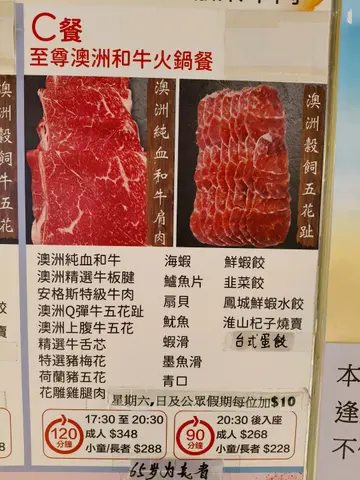 C餐
至尊澳洲和牛火鍋餐
澳洲純血和牛肩肉
澳洲穀飼五花趾
澳洲純血和牛
澳洲精選牛板腱
安格斯特級牛肉
澳洲Q彈牛五花趾
澳洲上腹牛五花
精選牛舌芯
特選豬梅花
荷蘭豬五花
花雕雞腿肉
海蝦
鱸魚片
扇貝
魷魚
蝦滑
墨魚滑
青口
鮮蝦餃
韭菜餃
鳳城鮮蝦水餃
淮山杞子燒賣
台式蛋餃
星期六,日及公眾假期每位加$10
120分鐘
17:30 至 20:30
成人 $348
小童/長者 $288
90分鐘
20:30 後入座
成人 $268
小童/長者 $228
65岁为長者
本
逢
不